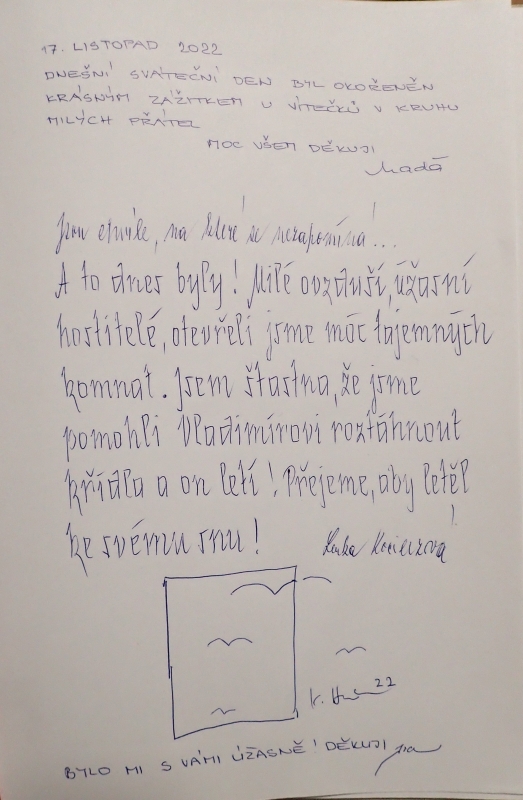 17. LISTOPAD 2022
DNEŠNÍ SVÁTEČNÍ DEN BYL OKOŘENĚN
KRÁSNÝM ZÁŽITKEM U VÍTEČKŮ V KRUHU
MILÝCH PŘÁTEL
MOC VŠEM DĚKUJI
Madá
Jsou chvíle, na které se nezapomíná...
A to dnes byly! Milé ovzduší, úžasní
hostitelé, otevřeli jsme moc tajemných
komnat. Jsem šťastna, že jsme
pomohli Vladimírovi roztáhnout
křídla a on letí! Přejeme, aby letěl
ke svému snu!
Lenka
22
BYLO MI S VÁMI ÚŽASNĚ! DĚKUJI